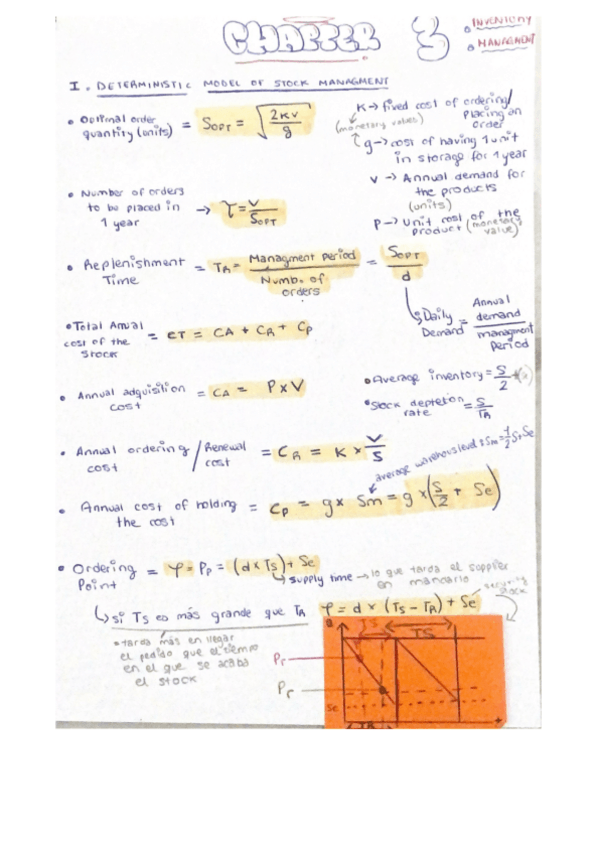 CHAPTER 3
• INVENTORY
• MANAGMENT
I. DETERMINISTIC MODEL OF STOCK MANAGMENT
• Optimal order quantity (units) = S_OPT = √(2KV/g)
K → fixed cost of ordering/
placing an order
(monetary values)
g → cost of having 1 unit
in storage for 1 year
V → Annual demand for
the products
(units)
P → Unit cost of the
product (monetary
value)
• Number of orders
to be placed in
1 year → τ = V/S_OPT
• Replenishment
Time = T_R = Managment period/Numb. of orders = S_OPT/d
Daily
Demand = Annual demand/managment period
• Total Anual
cost of the
stock = CT = CA + C_R + C_P
• Annual adquisition
cost = CA = P x V
• Average inventory = S/2
• Stock depletion
rate = S/T_R
• Annual ordering / Renewal
cost cost = C_R = K x V/S
average warehouse level: Sm = 1/2 S + Se
• Annual cost of holding
the cost = C_P = g x Sm = g x (S/2 + Se)
• Ordering
Point = φ = P_P = (d x Ts) + Se
supply time → lo que tarda el supplier
en mandarlo
si Ts es más grande que T_R φ = d x (Ts - T_R) + Se
security
stock
• tarda más en llegar
el pedido que el tiempo
en el que se acaba
el stock
TS
TS
Pr
Pr
Se
TR